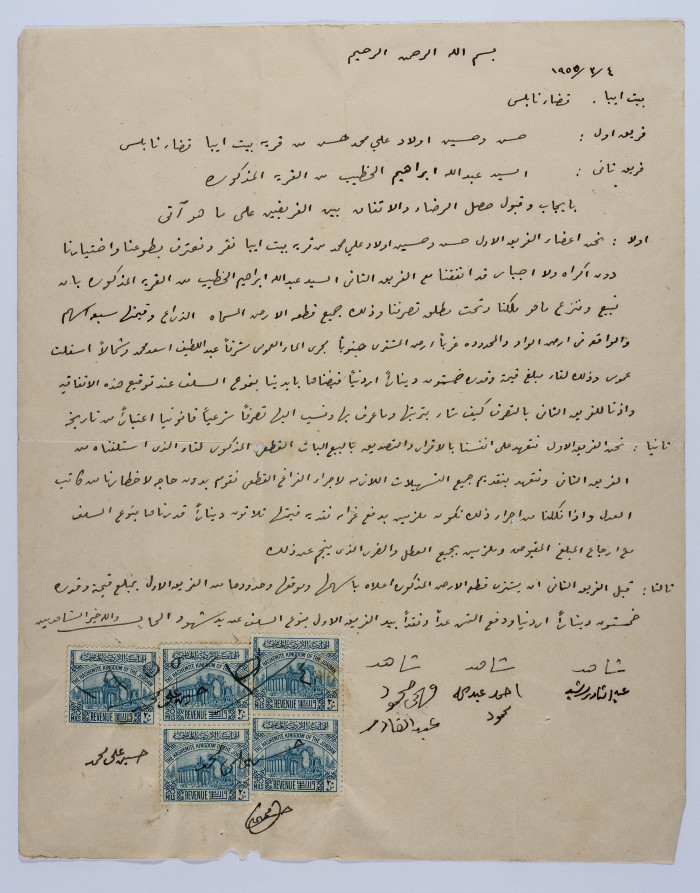 بسم الله الرحمن الرحيم
١٩٥٥/٣/٤
بيت ايبا . قضاء نابلس
فريق اول : حسن وحسين اولاد علي محمد حسن من قرية بيت ايبا قضاء نابلس
فريق ثاني : السيد عبدالله ابراهيم الخطيب من القرية المذكورة
بايجاب وقبول حصل الرضاء والاتفاق بين الفريقين على ما هو آتي
اولا : نحن اعضاء الفريق الاول حسن وحسين اولاد علي محمد من قرية بيت ايبا نقر ونعترف بطوعنا واختيارنا
دون اكراه ولا اجبار قد اتفقنا مع الفريق الثاني السيد عبدالله ابراهيم الخطيب من القرية المذكورة بان
نبيع ونفرغ ما هو ملكنا وتحت مطلق تصرفنا وذلك جميع قطعة الارض المسماه الذراع وقيمتها سبع اسهم
والواقعة في ارض الواد والمحدودة غرباً ارض المشتري جنوباً مجرى الماء العمومي شرقاً عبد اللطيف اسعد محمد وشمالاً اسفلت
عمومي وذلك لقاء مبلغ قيمة وقدره خمستون ديناراً اردنياً قبضناها بايدينا بنوع السلف عند توقيع هذه الاتفاقية
واذنا للفريق الثاني بالتصرف كيف شاء بتربتها وما عرف بها ونسب اليها تصرفاً شرعياً قانونيا اعتباراً من تاريخه
ثانيا : نحن الفريق الاول نتعهد على انفسنا بالاقرار والتصديق بالبيع البات القطعي المذكور لقاء الذي استلفناه من
الفريق الثاني ونتعهد بتقديم جميع التسهيلات اللازمة لاجراء الفراغ القطعي نقوم بدون حاجة لاخطارنا من كاتب
العدل واذا نكلنا من اجراء ذلك نكون ملزمين بدفع غرامة نقدية قيمتها ثلاثون ديناراً قدرناها بنوع السلف
مع ارجاع المبلغ المقبوض وملزمين بجميع العطل والضرر الذي ينجم عن ذلك
ثالثا : قبل الفريق الثاني ان يشتري قطعة الارض المذكورة اعلاه باسهمها وموقعها وحدودها من الفريق الاول بمبلغ قيمة وقدره
خمستون ديناراً اردنيا ودفع الثمن عداً ونقداً بيد الفريق الاول بنوع السلف عن يد شهود الحال والله خير الشاهدين
شاهد شاهد شاهد
عبد القادر رشيد
احمد عبدالله محمود
فهمي محمود عبد القادر
المملكة الاردنية الهاشمية
THE HASHEMITE KINGDOM OF THE JORDAN
REVENUE
FILS ٢٠
حسين علي محمد